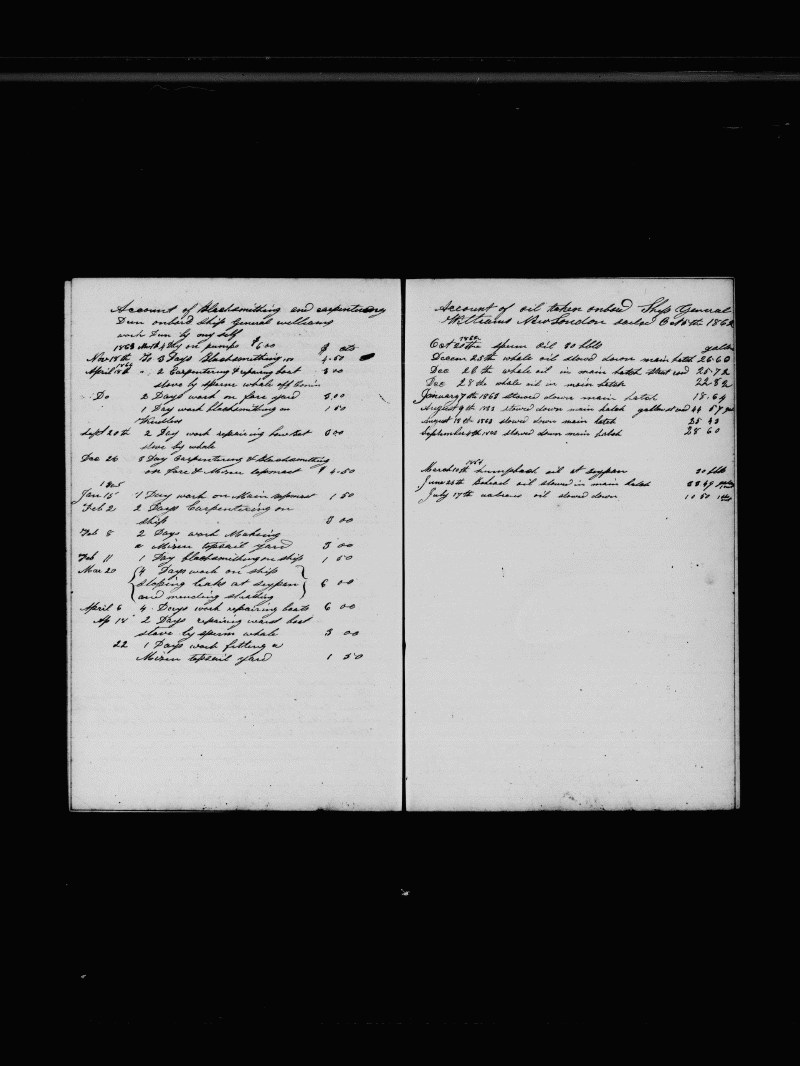 Account of Blacksmithing and carpentering
Dun onbord Ship General williams
work Dun by my self
1863 4 Day on pumps $6.00
$ cts
Nov 18th To 3 Days Blacksmithing 4.50
April 18th 2 Carpentering & repairing boat 3 00
stove by sperm whale off
Do 2 Days work on fore yard 3,00
1 Day work blacksmithing on 1 50
Windlass
Sept 20th 2 Day work repairing bow boat 3 00
stove by whale
Dec 26 3 Day Carpentering & Blacksmithing
on fore & Mizen topmast $ 4.50
Jan 15 1 Day work on Main topmast 1 50
Feb 2 2 Days Carpentering on
ship 3 00
Feb 8 2 Days work Making
a Mizen topsail yard 3 00
Feb 11 1 Day blacksmithing on ship 1 50
Mar 20 4 Days work on ship
stoping leaks at Seypan 6 00
and mending sheathing
April 6 4 Days work repairing boats 6 00
Ap 14 2 Days repairing waist boat
stove by sperm whale 3 00
22 1 Days work fitting a
Mizen topsail yard 1 50
Account of oil taken onbord Ship General
Williams New London sailed Oct 5th 1862
Oct 20the 1862 sperm oil 80 bbls
gallon
Decem 25th whale oil stowed down main hatch 26.60
Dec 26th whale oil in main hatch 25.72
Dec 28the whale oil in main hatch 22.82
January 7th 1863 stowed down main hatch 18.64
August 9th 1863 stowed down main hatch 44 57
August 18th 1863 stowed down main hatch 25 43
September 8th 1863 stowed down main hatch 28 60
March 10th 1864 humpback oil at Seypan 20 bbls
June 25th oil stowed in main hatch 68 49
July 17th oil stowed down 10 50